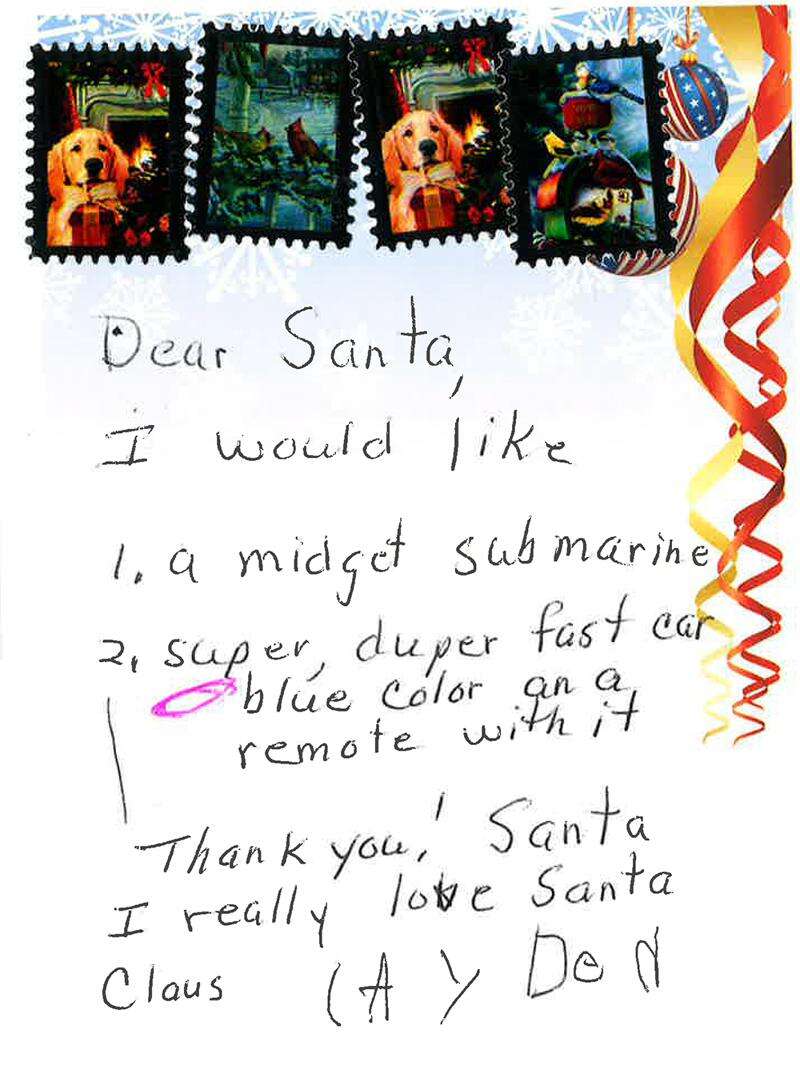 Dear Santa,
I would like
1. a midget submarine
2. super, duper fast car
blue color an a
remote with it
Thank you! Santa
I really love Santa
Claus (AYDeN